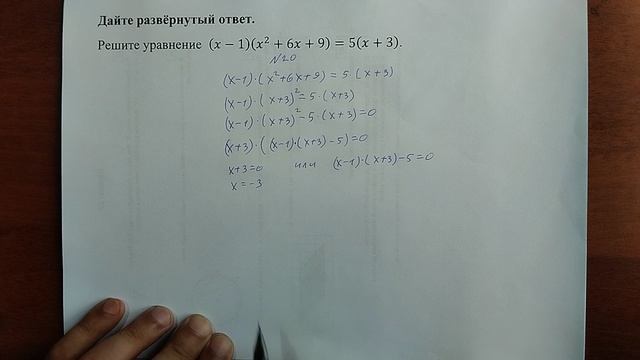 Дайте развёрнутый ответ.
Решите уравнение (x − 1)(x² + 6x + 9) = 5(x + 3).
N20
(x-1)·(x²+6x+9) = 5·(x+3)
(x-1)·(x+3)²=5·(x+3)
(x-1)·(x+3)²-5·(x+3)=0
(x+3)·((x-1)·(x+3)-5)=0
x+3=0 или (x-1)·(x+3)-5=0
x=-3